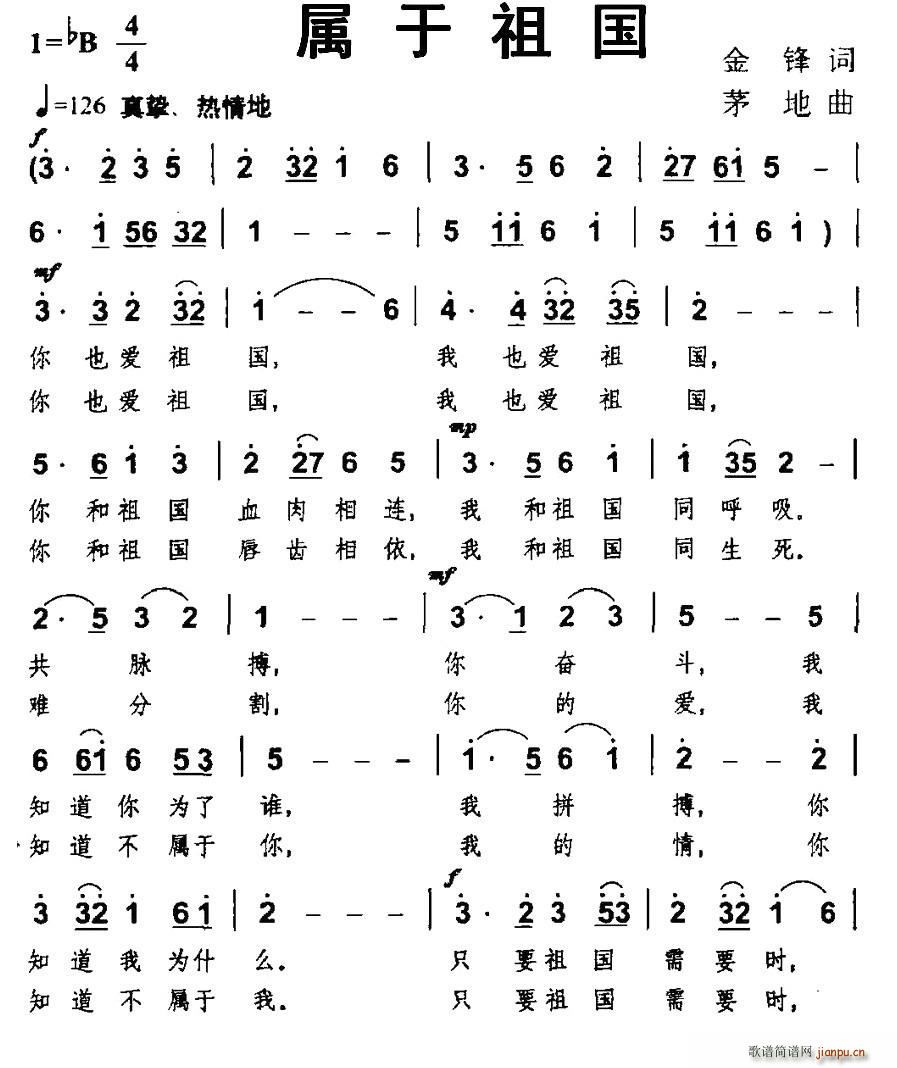 属于祖国
1=♭B 4/4
金锋词
♩=126 真挚、热情地
茅地曲
f
(3· 2 3 5 | 2 32 1 6 | 3· 5 6 2 | 27 61 5 – |
6· 1 56 32 | 1 – – – | 5 11 6 1 | 5 11 6 1 ) |
mf
3· 3 2 32 | 1 – – 6 | 4· 4 32 35 | 2 – – – |
你也爱祖国, 我也爱祖国,
你也爱祖国, 我也爱祖国,
mp
5· 6 1 3 | 2 27 6 5 | 3· 5 6 1 | 1 35 2 – |
你和祖国血肉相连, 我和祖国同呼吸.
你和祖国唇齿相依, 我和祖国同生死.
mf
2· 5 3 2 | 1 – – – | 3· 1 2 3 | 5 – – 5 |
共脉搏, 你奋斗, 我
难分割, 你的爱, 我
6 61 6 53 | 5 – – – | 1· 5 6 1 | 2 – – 2 |
知道你为了谁, 我拼搏, 你
知道不属于你, 我的情, 你
f
3 32 1 61 | 2 – – – | 3· 2 3 53 | 2 32 1 6 |
知道我为什么. 只要祖国需要时,
知道不属于我. 只要祖国需要时,
歌谱简谱网 jianpu.cn